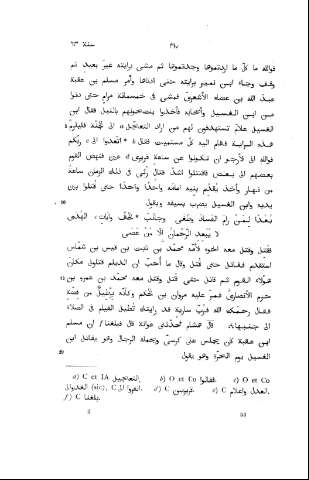 سنة ٦٣
فوالله ما كل ما اردتموها وجدتموها ثم مشى برايته غير بعيد ثم
وقف وجاء ابن نمير برايته حتى ادناها وأمر مسلم بن عقبة
عبد الله بن عضاه الأشعرى فمشى فى خمسمائة مرام حتى دنوا
من ابن الغسيل وأصحابه فأخذوا ينضحونهم بالنبل فقال ابن
الغسيل علام تستهدفون لهم من اراد التعاجل a الى الجنة فليلزم ٥
هذه الراية فقام اليه كل مستميت فقال b اغدوا الى c ربكم
فوالله انى لأرجو ان تكونوا عن ساعة قريرى d عين فنهض القوم
بعضهم الى بعض فاقتتلوا اشد قتال رئى فى ذلك الزمان ساعة
من نهار وأخذ يقدم بنيه امامه واحدا واحدا حتى قتلوا بين
يديه وابن الغسيل يضرب بسيفه ويقول ١٠
بعدا لمن رام الفساد وطغى وجانب الحق وآيات الهدى
لا يبعد الرحمان الا من عصى
فقتل وقتل معه اخوه لأمه محمد بن ثابت بن قيس بن شماس
استقدم فقاتل حتى قتل وقال ما أحب ان الديلم قتلونى مكان
هؤلاء القوم ثم قاتل حتى قتل وقتل معه محمد بن عمرو بن ١٥
حزم الأنصارى فمر عليه مروان بن الحكم وكأنه برطيل من فضة
فقال رحمك الله فرب سارية قد رايتك تطيل القيام فى الصلاة
الى جنبها، قال هشام فحدثنى عوانة قال فبلغنا f ان مسلم
ابن عقبة كان يجلس على كرسى ويحمله الرجال وهو يقاتل ابن
الغسيل يوم الحرة وهو يقول ٢٠
a) C et IA التعجيل. b) O et Co فقالوا. c) O et Co